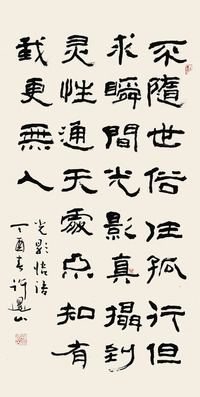 不隨世俗任孤行但
求瞬間光影真攝到
灵性通天處点知有
我更無人
光影悟语
丁酉春许
山